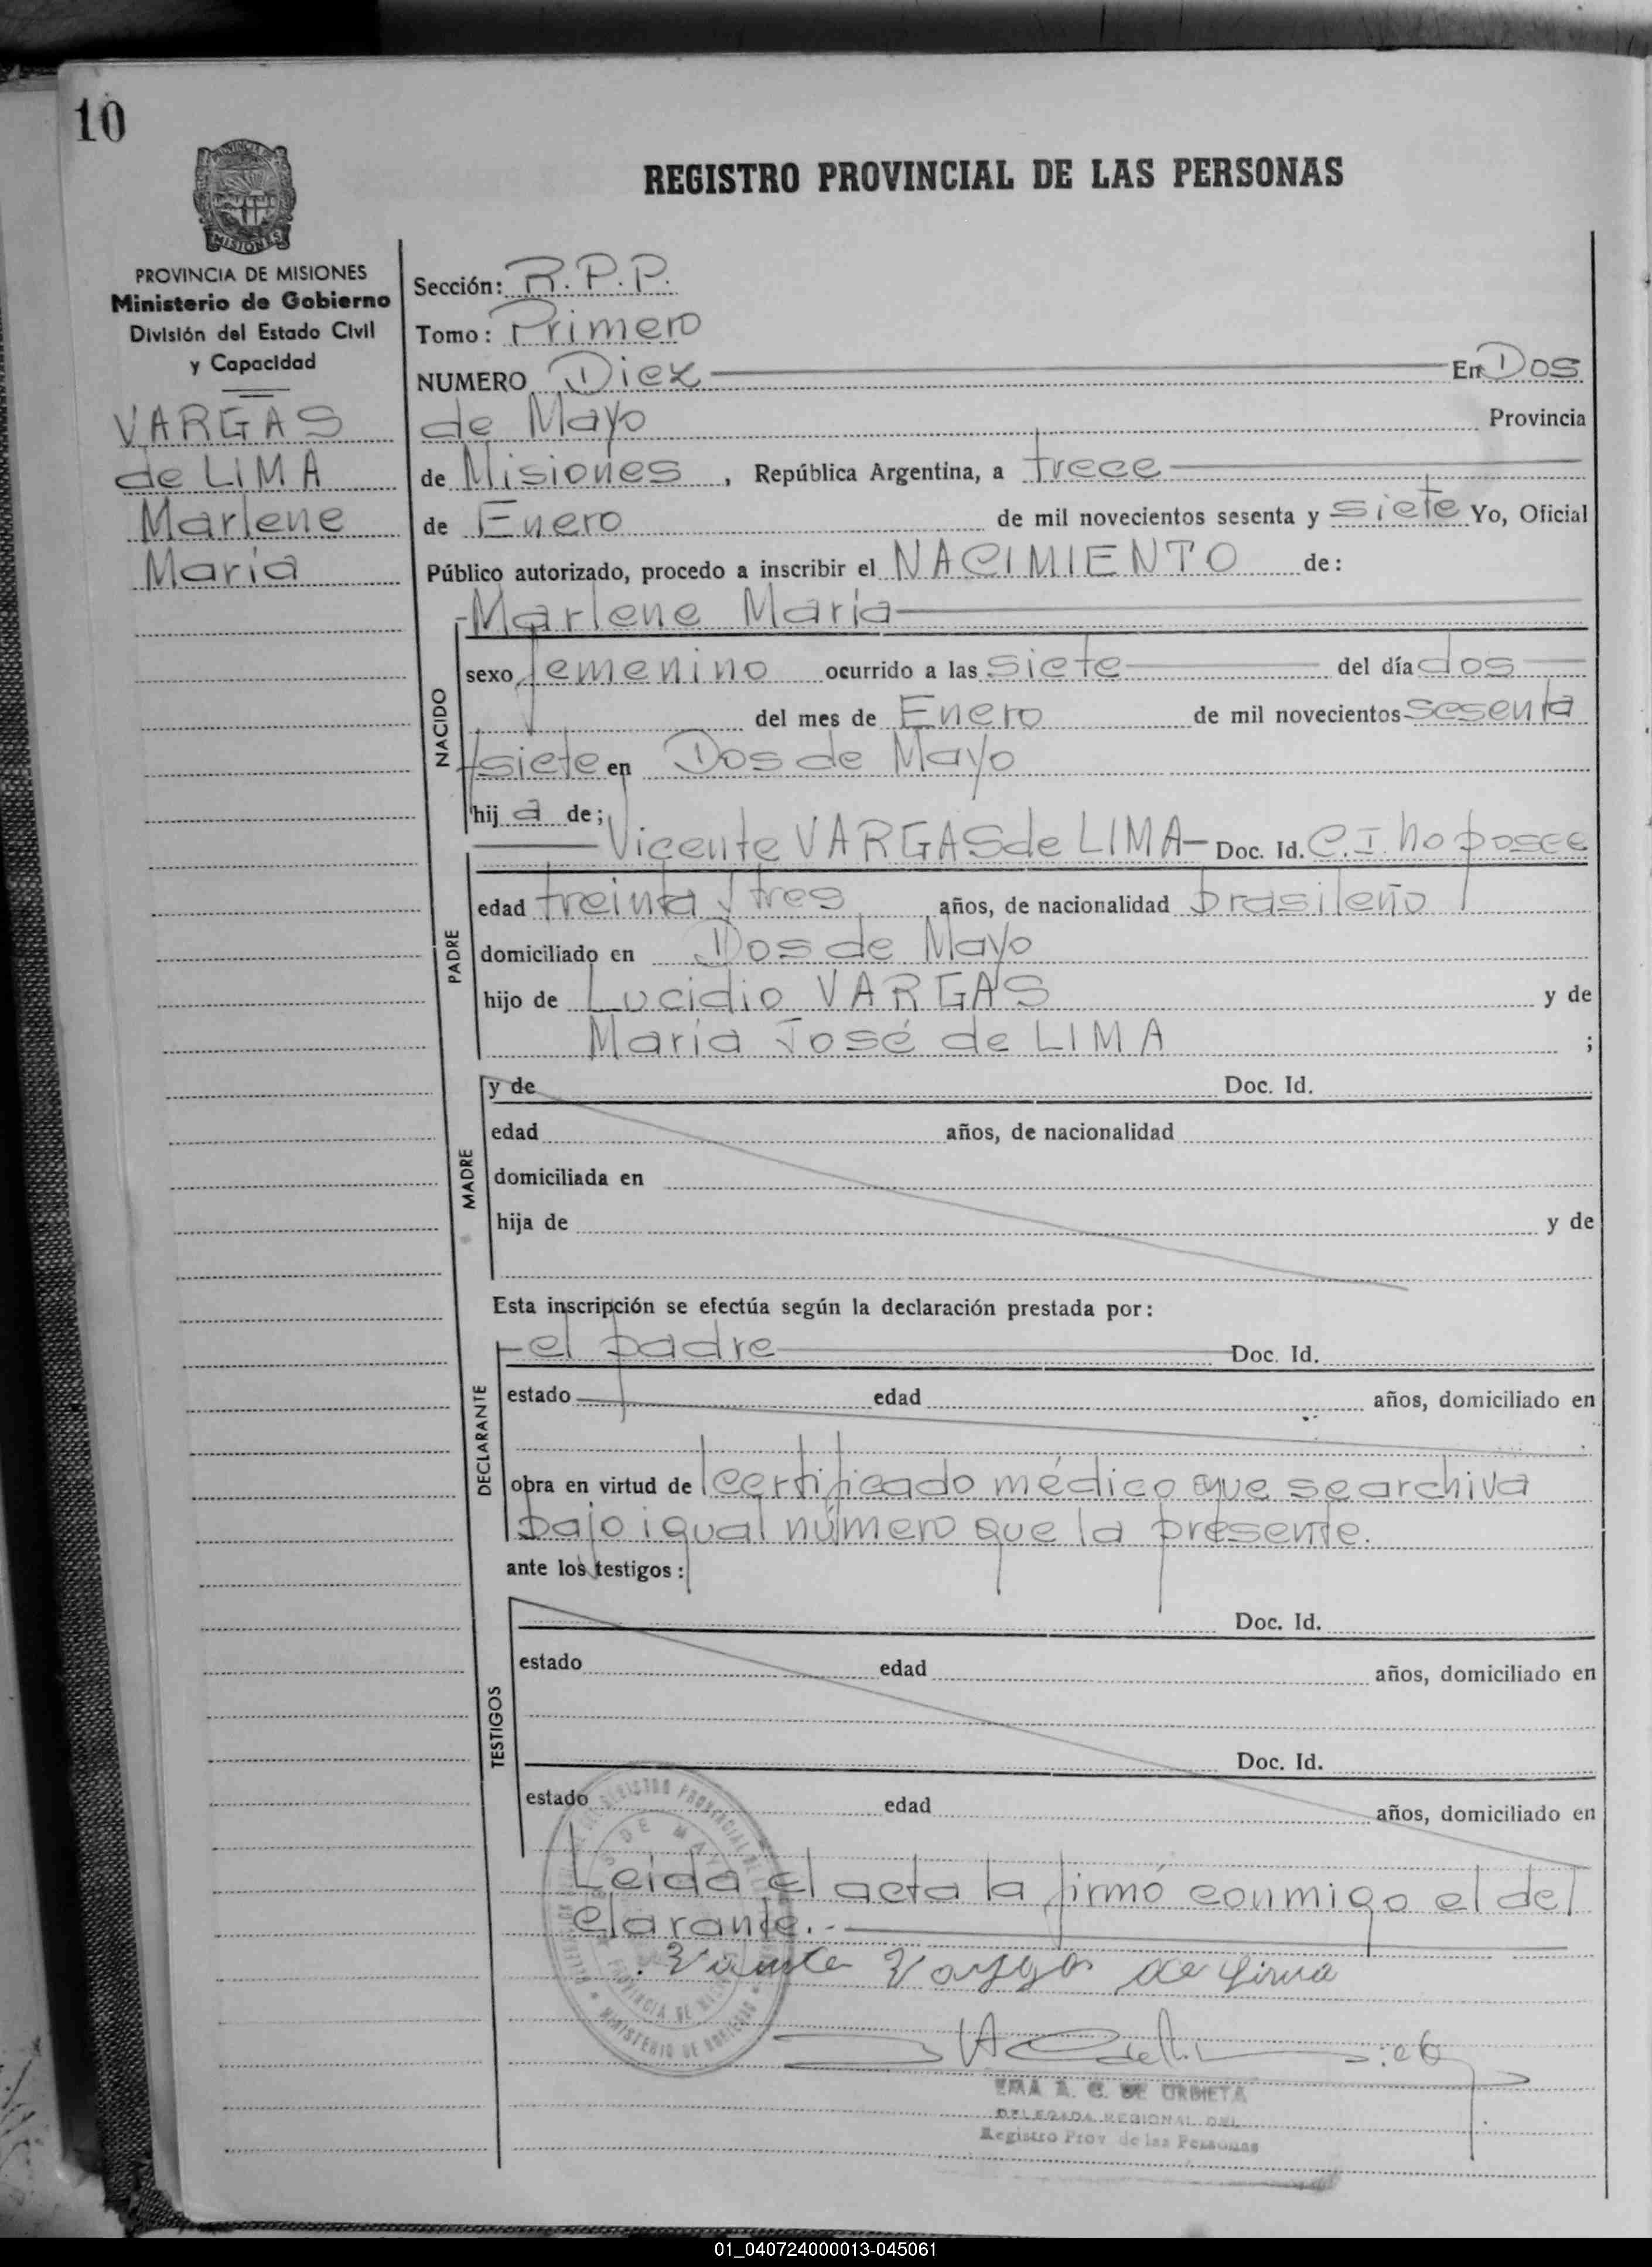 10
REGISTRO PROVINCIAL DE LAS PERSONAS
MISIONES
PROVINCIA DE MISIONES
Ministerio de Gobierno
División del Estado Civil
y Capacidad
VARGAS
de LIMA
Marlene
María
Sección: R.P.P.
Tomo: Primero
NUMERO Diez En Dos
de Mayo Provincia
de Misiones, República Argentina, a trece
de Enero de mil novecientos sesenta y siete Yo, Oficial
Público autorizado, procedo a inscribir el NACIMIENTO de:
NACIDO
Marlene María
sexo femenino ocurrido a las siete del día dos
del mes de Enero de mil novecientos sesenta
y siete en Dos de Mayo
hij a de;
PADRE
Vicente VARGAS de LIMA Doc. Id. C.I. no posee
edad treinta y tres años, de nacionalidad brasileño
domiciliado en Dos de Mayo
hijo de Lucidio VARGAS y de
María José de LIMA ;
MADRE
y de Doc. Id.
edad años, de nacionalidad
domiciliada en
hija de y de
Esta inscripción se efectúa según la declaración prestada por:
DECLARANTE
el padre Doc. Id.
estado edad años, domiciliado en
obra en virtud de l certificado médico que se archiva
bajo igual número que la presente.
ante los testigos:
TESTIGOS
Doc. Id.
estado edad años, domiciliado en
Doc. Id.
estado edad años, domiciliado en
Leida el acta la firmó conmigo el de
clarante.
Vicente Vargas de Lima
EMA A. C. DE URBIETA
DELEGADA REGIONAL DEL
Registro Prov. de las Personas
01_040724000013-045061